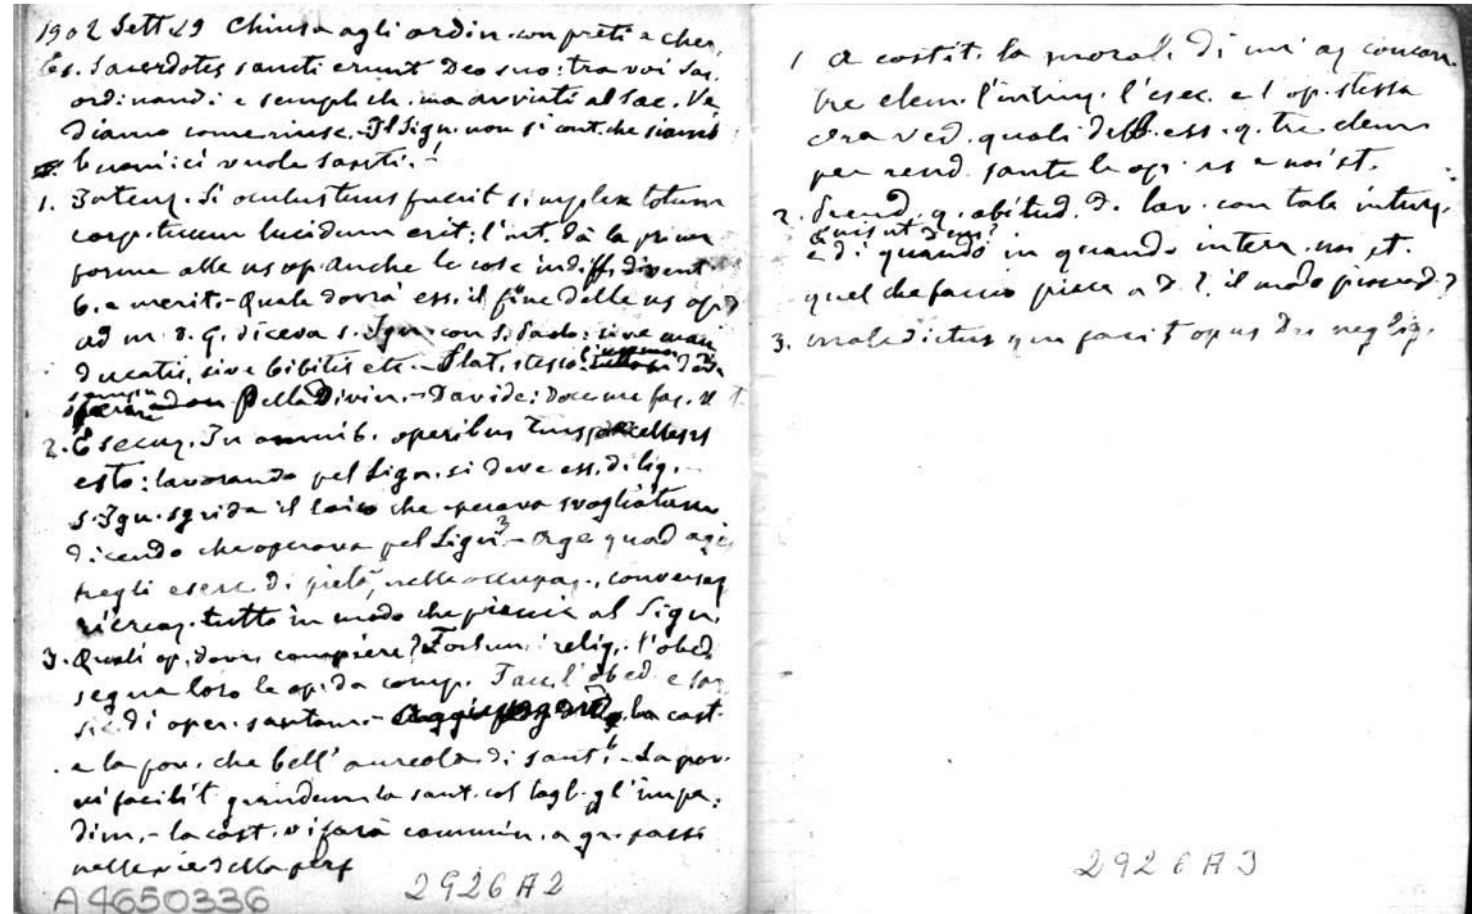 1902 Sett 29 Chiusa agli ordin. con preti e cher.
Es. Sacerdotes sancti erunt Deo suo: tra voi sac.
ordinandi e semplici ch. ma avviati al sac. Ve
diamo come riusc. Il Sign. non si cont. che siamo
buoni: ci vuole santi.
1. Intenz. Si oculus tuus fuerit simplex totum
corp. tuum lucidum erit: l'int. dà la prima
forma alle ns op. Anche le cose indiff. divent.
b. e merit. - Quale dovrà ess. il fine delle ns op.?
ad m. D. G. diceva S. Ign. con S. Paolo: sive man
ducatis, sive bibitis etc. - Plat. stesso: l'uomo
della Divin. - Davide: Doce me fac. V. T
2. Esecuz. In omnib. operibus tuis praecellens
esto: lavorando pel Sign. si deve ess. dilig. -
S. Ign. sgrida il laico che operava svogliatam.
dicendo che operava pel Sign. - Age quod agis
negli eserc. di pietà, nelle occupaz., conversaz
ricreaz. tutto in modo che piaccia al Sign.
3. Quali op. dovr. compiere? Fortun. i relig. l'obed.
segna loro le op. da comp. Facc. l'obed. e son
sic. di oper. santam. - la cast.
e la pov. che bell'aureola di sant. - La pov.
vi facilit. grandem. la sant. col togl. gl'impe.
dim. - la cast. vi farà cammin. a gr. passi
nelle vie della perf
A4650336
2926A2
1 A costit. la moral. di un' az concorr.
tre elem. l'intenz. l'esec. e l'op. stessa
ora ved. quali debb. ess. q. tre elem
per rend. sante le op. ns e noi st.
2. Prend. q. abitud. di lav. con tale intenz.
e di quando in quando interr. noi st.
quel che faccio piace a D.? il modo piacerà?
3. Maledictus qui facit opus Dei neglig.
2926A3